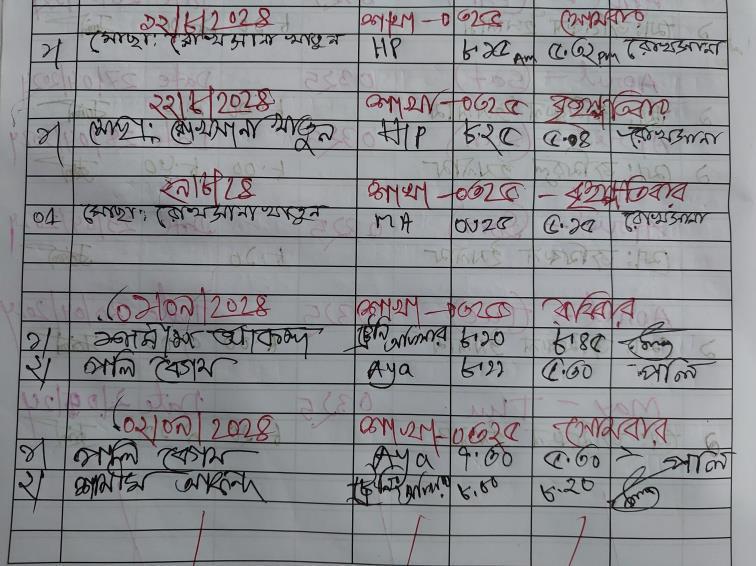 ১২/৮/২০২৪ শাখা-০৩২৫ সোমবার
১/ মোছা: রোখসানা খাতুন HP ৮.১৫ Am ৫.৩২ Pm রোখসানা
২২/৮/২০২৪ শাখা-০৩২৫ বৃহস্পতিবার
১/ মোছা: রোখসানা খাতুন HP ৮.২৫ ৫.০৪ রোখসানা
২৯/৮/২৪ শাখা-০৩২৫ - বৃহস্পতিবার
০১ মোছা: রোখসানা খাতুন MA ৫.১৫ রোখসানা
০১/০৯/২০২৪ শাখা-০৩২৫ রবিবার
১/ শামীম আকন্দ ৮.২০ ৮.৪৫
২/ পলি বেগম Aya ৮.২২ ৫.৩০ পলি
০২/০৯/২০২৪ শাখা-০৩২৫ সোমবার
১/ পলি বেগম Aya ৭.৩০ ৫.৩০ পলি
২/ শামীম আকন্দ ৮.০০ ৮.২০